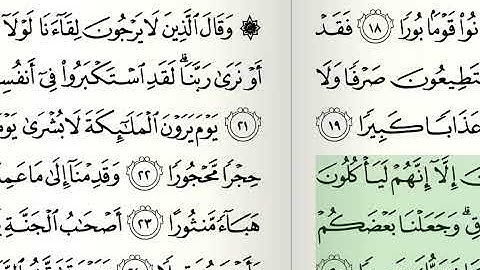 نُوا۟ قَوْمًۢا بُورًا ۝١٨ فَقَدْ
تَطِيعُونَ صَرْفًا وَلَا
عَذَابًا كَبِيرًا ۝١٩
إِلَّآ إِنَّهُمْ لَيَأْكُلُونَ
وَجَعَلْنَا بَعْضَكُمْ
۞ وَقَالَ ٱلَّذِينَ لَا يَرْجُونَ لِقَآءَنَا لَوْلَآ
أَوْ نَرَىٰ رَبَّنَا ۗ لَقَدِ ٱسْتَكْبَرُوا۟ فِىٓ أَنفُسِ
۝٢١ يَوْمَ يَرَوْنَ ٱلْمَلَٰٓئِكَةَ لَا بُشْرَىٰ يَوْ
حِجْرًا مَّحْجُورًا ۝٢٢ وَقَدِمْنَآ إِلَىٰ مَا عَمِ
هَبَآءً مَّنثُورًا ۝٢٣ أَصْحَٰبُ ٱلْجَنَّةِ